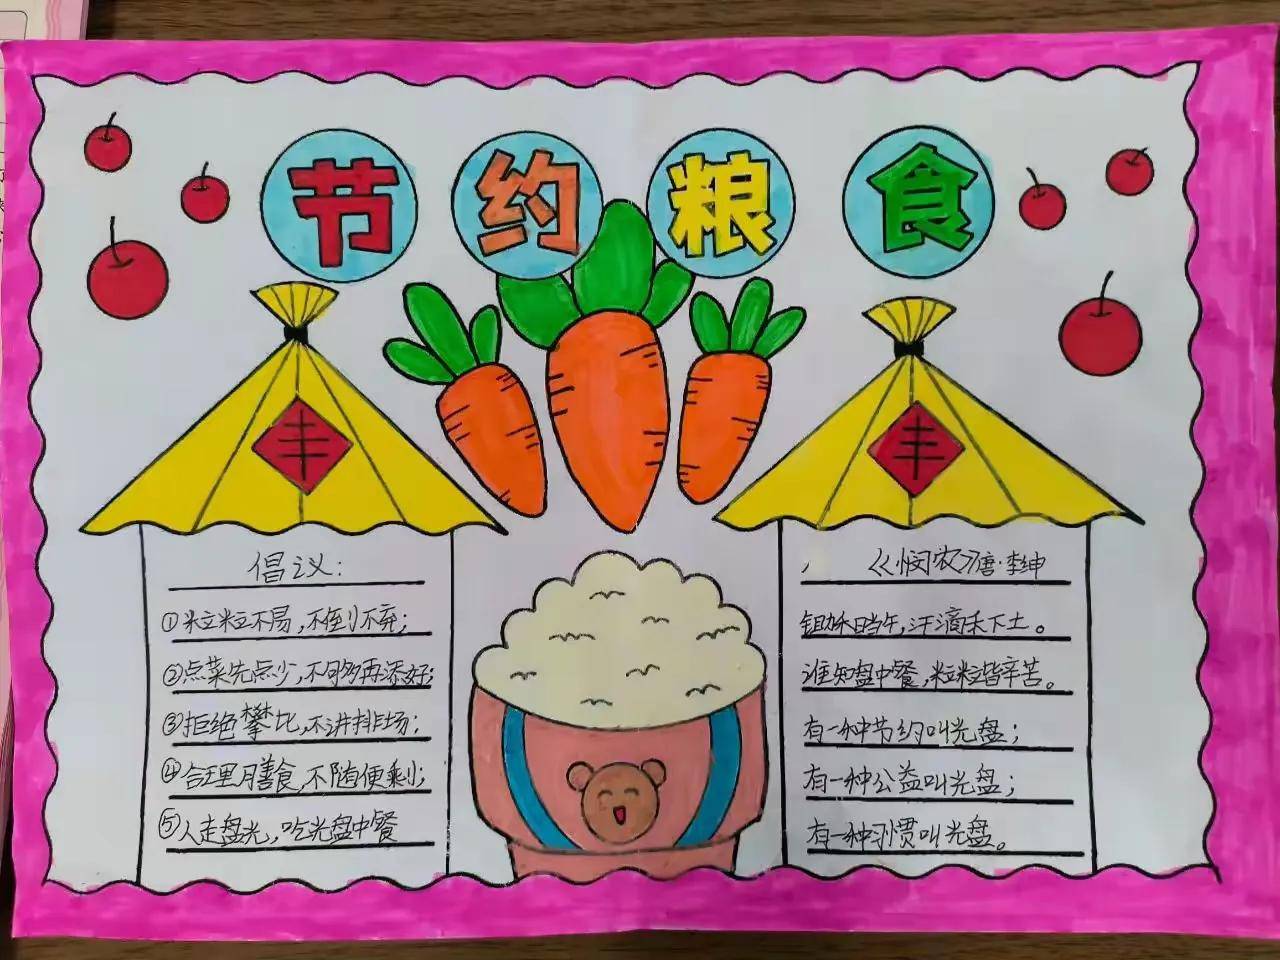 节约粮食
丰
丰
倡议:
①粒粒不易,不倒不弃;
②点菜先点少,不够再添好;
③拒绝攀比,不讲排场;
④合理膳食,不随便剩;
⑤人走盘光,吃光盘中餐
《悯农》唐·李绅
锄禾日当午,汗滴禾下土。
谁知盘中餐,粒粒皆辛苦。
有一种节约叫光盘;
有一种公益叫光盘;
有一种习惯叫光盘。